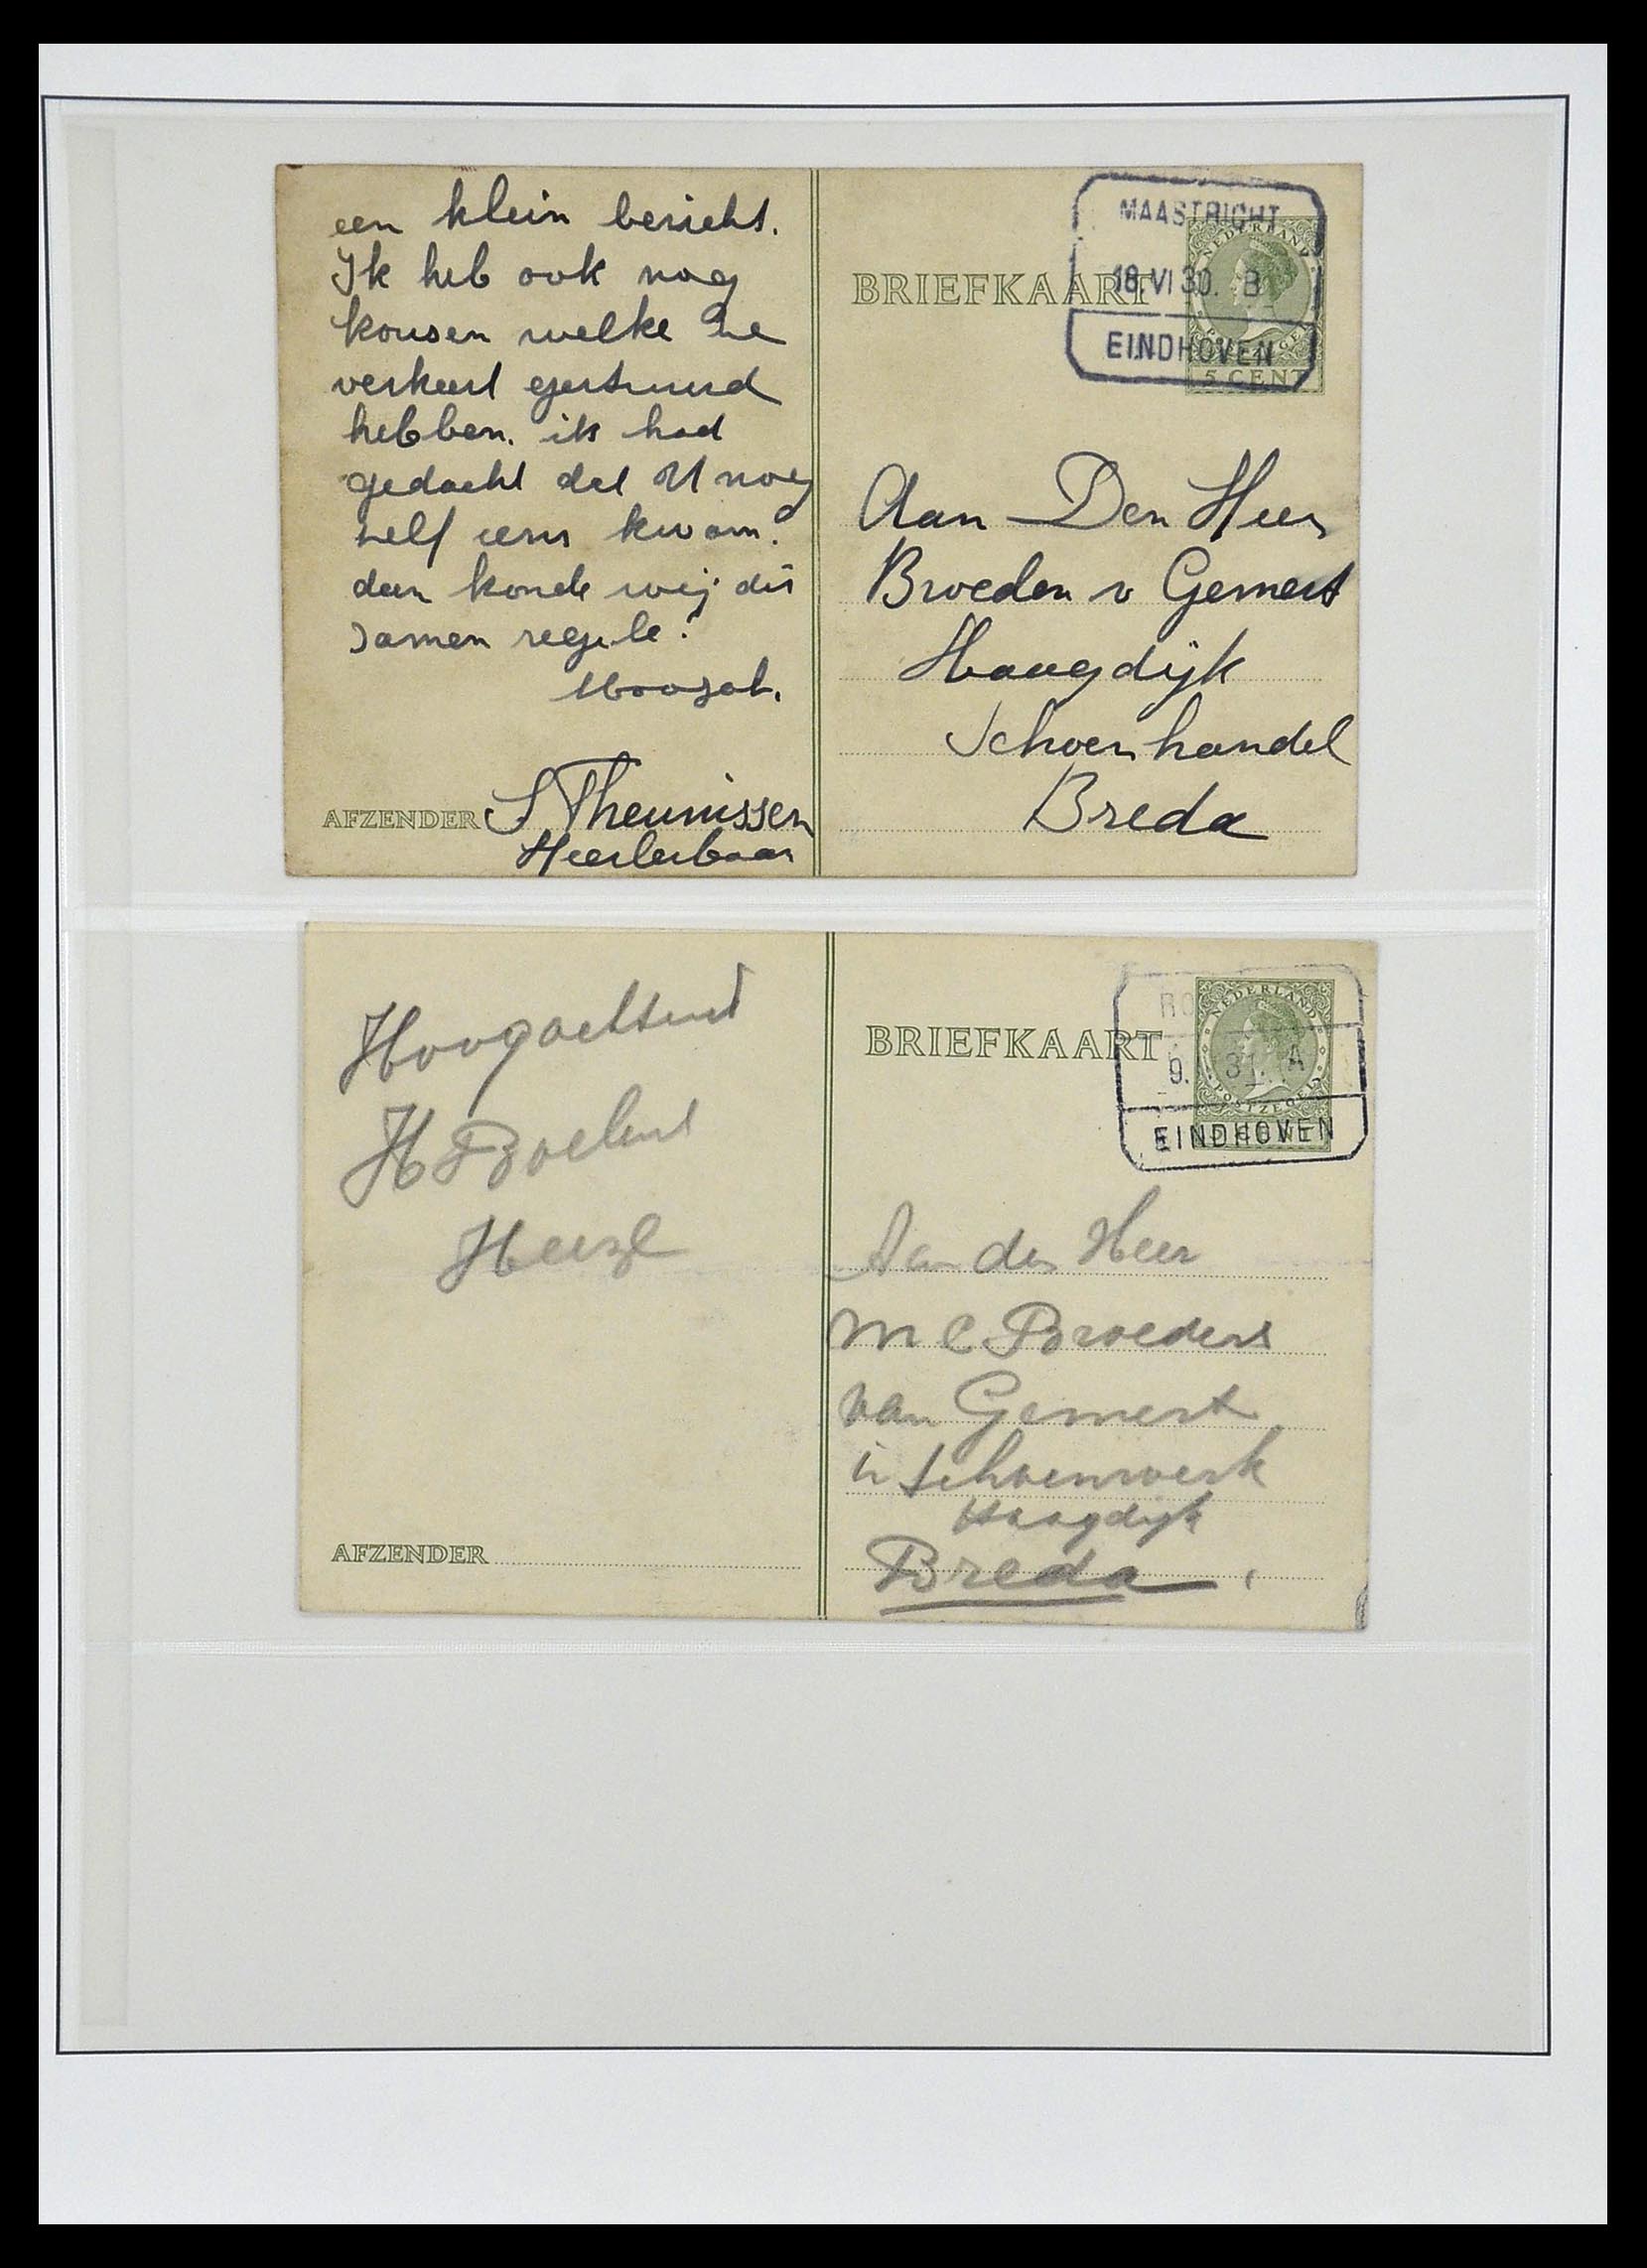 een klein bericht.
Ik heb ook nog
kousen welke ze
verkeerd gestuurd
hebben. ik had
gedacht dat U nog
zelf eens kwam.
dan konde wij dit
samen regele.
Hoogat.
AFZENDER S Theunissen
Heerlerbaan
MAASTRICHT
18.VI 30. B
EINDHOVEN
NEDERLAND
5 CENT
BRIEFKAART
Aan Den Heer
Broeden v Gemert
Haagdijk
Schoenhandel
Breda
Hoogachtend
H Roelens
Heeze
AFZENDER
9. 31. A
EINDHOVEN
NEDERLAND
POSTZEGEL
BRIEFKAART
Aan den Heer
M C Broeders
van Gemert
in Schoenwerk
Haagdijk
Breda